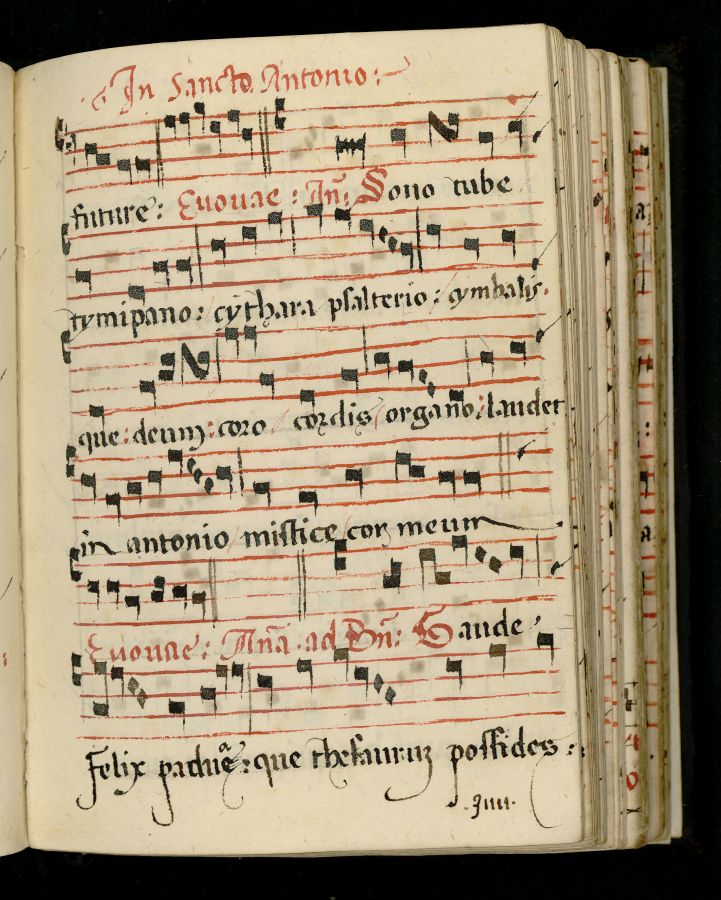 In Sancto Antonio:
future: Euouae: Añ: Sono tube
tympano: cythara psalterio: cymbalis
que: deum: coro cordis organo: laudet
in antonio mistice cor meum
Euouae: Aña ad Bñ: Gaude
Felix padua: que thesaurum possides: